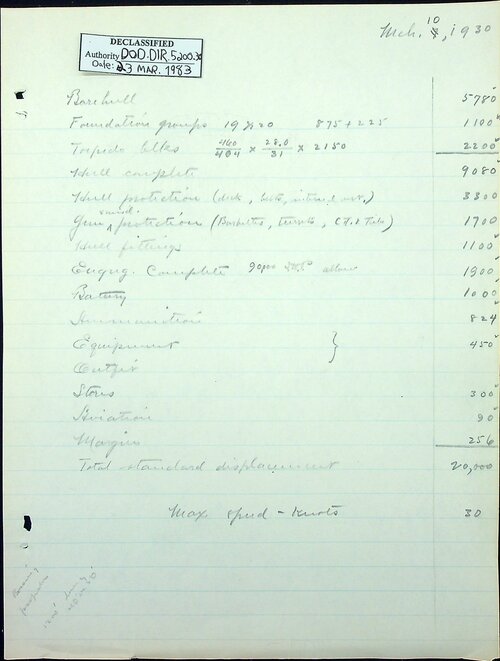 Mch. 10, 1930
DECLASSIFIED
Authority DOD.DIR.5200.30
Date: 23 MAR. 1983
Bare hull 5780
Foundation groups 19 & 20 875 + 225 1100
Torpedo blks 460/404 × 28.0/31 × 2150 2200
Hull complete 9080
Hull protection (deck, blts, 3300
Gun & protection (Barbettes, turrets, C.T. & Tube) 1700
Hull fittings 1100
Engng. Complete allow 1900
Battery 1000
Ammunition 824
Equipment } 450
Outfit
Stores 300
Aviation 90
Margin 256
Total standard displacement 20,000
Max speed - Knots 30